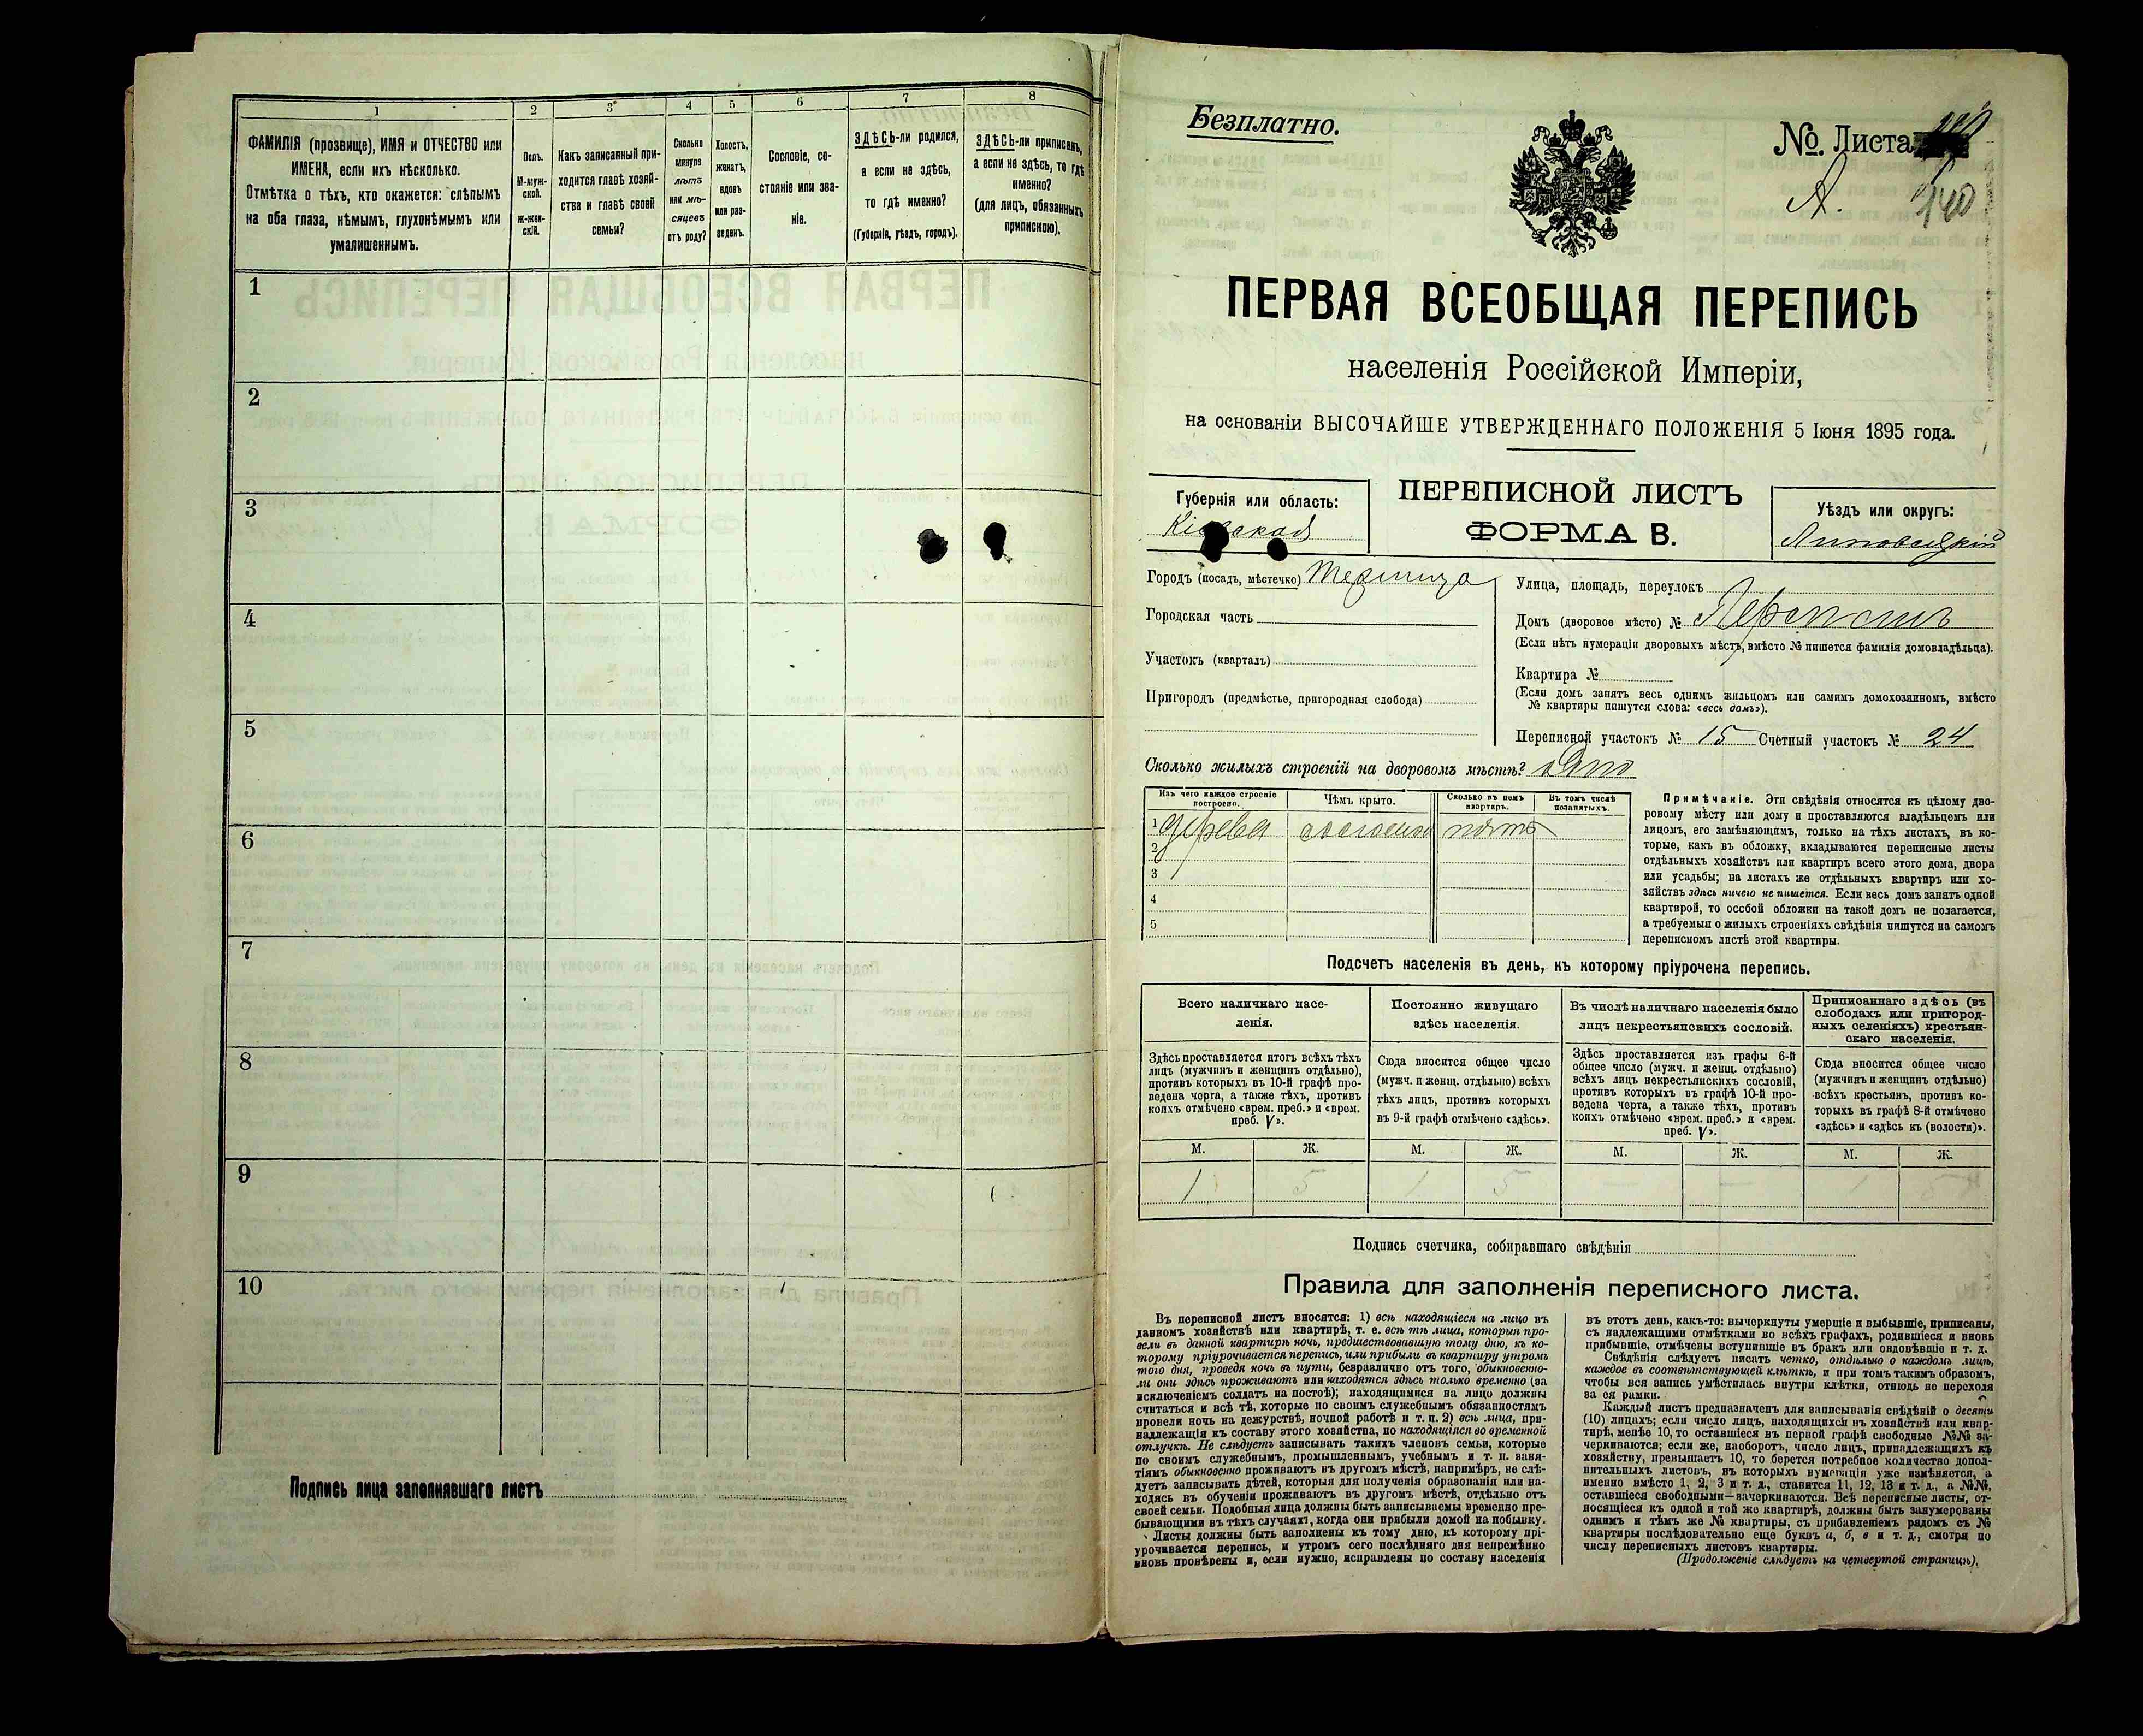 1 2 3 4 5 6 7 8
ФАМИЛІЯ (прозвище), ИМЯ и ОТЧЕСТВО или
ИМЕНА, если ихъ нѣсколько.
Отмѣтка о тѣхъ, кто окажется: слѣпымъ
на оба глаза, нѣмымъ, глухонѣмымъ или
умалишеннымъ.
Полъ.
М-муж-
ской.
ж-жен-
скій.
Какъ записанный при-
ходится главѣ хозяй-
ства и главѣ своей
семьи?
Сколько
минуло
лѣтъ
или мѣ-
сяцевъ
отъ роду?
Холостъ,
женатъ,
вдовъ
или раз-
веденъ.
Сословіе, со-
стояніе или зва-
ніе.
ЗДѢСЬ-ли родился,
а если не здѣсь,
то гдѣ именно?
(Губернія, уѣздъ, городъ).
ЗДѢСЬ-ли приписанъ,
а если не здѣсь, то гдѣ
именно?
(для лицъ, обязанныхъ
припискою).
1
2
3
4
5
6
7
8
9
10
Подпись лица заполнявшаго листъ
Безплатно.
№. Листа
А. 140
ПЕРВАЯ ВСЕОБЩАЯ ПЕРЕПИСЬ
населенія Россійской Имперіи,
на основаніи ВЫСОЧАЙШЕ УТВЕРЖДЕННАГО ПОЛОЖЕНІЯ 5 Іюня 1895 года.
Губернія или область:
Кіевская
ПЕРЕПИСНОЙ ЛИСТЪ
ФОРМА В.
Уѣздъ или округъ:
Липовецкій
Городъ (посадъ, мѣстечко)
Городская часть
Участокъ (кварталъ)
Пригородъ (предмѣстье, пригородная слобода)
Улица, площадь, переулокъ
Домъ (дворовое мѣсто) №
(Если нѣтъ нумераціи дворовыхъ мѣстъ, вмѣсто № пишется фамилія домовладѣльца).
Квартира №
(Если домъ занятъ весь однимъ жильцомъ или самимъ домохозяиномъ, вмѣсто
№ квартиры пишутся слова: «весь домъ»).
Переписной участокъ № 15 Счетный участокъ № 24
Сколько жилыхъ строеній на дворовомъ мѣстѣ? одно
Изъ чего каждое строеніе
построено.
Чѣмъ крыто.
Сколько въ немъ
квартиръ.
Въ томъ числѣ
незанятыхъ.
1 дерева соломой пять
2
3
4
5
Примѣчаніе. Эти свѣдѣнія относятся къ цѣлому дво-
ровому мѣсту или дому и проставляются владѣльцемъ или
лицомъ, его замѣняющимъ, только на тѣхъ листахъ, въ ко-
торые, какъ въ обложку, вкладываются переписные листы
отдѣльныхъ хозяйствъ или квартиръ всего этого дома, двора
или усадьбы; на листахъ же отдѣльныхъ квартиръ или хо-
зяйствъ здѣсь ничего не пишется. Если весь домъ занятъ одной
квартирой, то особой обложки на такой домъ не полагается,
а требуемыя о жилыхъ строеніяхъ свѣдѣнія пишутся на самомъ
переписномъ листѣ этой квартиры.
Подсчетъ населенія въ день, къ которому пріурочена перепись.
Всего наличнаго насе-
ленія.
Постоянно живущаго
здѣсь населенія.
Въ числѣ наличнаго населенія было
лицъ некрестьянскихъ сословій.
Приписаннаго здѣсь (въ
слободахъ или пригород-
ныхъ селеніяхъ) крестьян-
скаго населенія.
Здѣсь проставляется итогъ всѣхъ тѣхъ
лицъ (мужчинъ и женщинъ отдѣльно),
противъ которыхъ въ 10-й графѣ про-
ведена черта, а также тѣхъ, противъ
коихъ отмѣчено «врем. преб.» и «врем.
преб. V».
Сюда вносится общее число
(мужч. и женщ. отдѣльно) всѣхъ
тѣхъ лицъ, противъ которыхъ
въ 9-й графѣ отмѣчено «здѣсь».
Здѣсь проставляется изъ графы 6-й
общее число (мужч. и женщ. отдѣльно)
всѣхъ лицъ некрестьянскихъ сословій,
противъ которыхъ въ графѣ 10-й про-
ведена черта, а также тѣхъ, противъ
коихъ отмѣчено «врем. преб.» и «врем.
преб. V».
Сюда вносится общее число
(мужчинъ и женщинъ отдѣльно)
всѣхъ крестьянъ, противъ ко-
торыхъ въ графѣ 8-й отмѣчено
«здѣсь» и «здѣсь къ (волости)».
М. Ж. М. Ж. М. Ж. М. Ж.
1 5 1 5 — — 1 5
Подпись счетчика, собиравшаго свѣдѣнія
Правила для заполненія переписного листа.
Въ переписной листъ вносятся: 1) всѣ находящіеся на лицо въ
данномъ хозяйствѣ или квартирѣ, т. е. всѣ тѣ лица, которыя про-
вели въ данной квартирѣ ночь, предшествовавшую тому дню, къ ко-
торому пріурочивается перепись, или прибыли въ квартиру утромъ
того дня, проведя ночь въ пути, безразлично отъ того, обыкновенно-
ли они здѣсь проживаютъ или находятся здѣсь только временно (за
исключеніемъ солдатъ на постоѣ); находящимися на лицо должны
считаться и всѣ тѣ, которые по своимъ служебнымъ обязанностямъ
провели ночь на дежурствѣ, ночной работѣ и т. п. 2) всѣ лица, при-
надлежащія къ составу этого хозяйства, но находящіяся во временной
отлучкѣ. Не слѣдуетъ записывать такихъ членовъ семьи, которые
по своимъ служебнымъ, промышленнымъ, учебнымъ и т. п. заня-
тіямъ обыкновенно проживаютъ въ другомъ мѣстѣ, напримѣръ, не слѣ-
дуетъ записывать дѣтей, которыя для полученія образованія или на-
ходясь въ обученіи проживаютъ въ другомъ мѣстѣ, отдѣльно отъ
своей семьи. Подобныя лица должны быть записываемы временно пре-
бывающими въ тѣхъ случаяхъ, когда они прибыли домой на побывку.
Листы должны быть заполнены къ тому дню, къ которому прі-
урочивается перепись, и утромъ сего послѣдняго дня непремѣнно
вновь провѣрены и, если нужно, исправлены по составу населенія
въ этотъ день, какъ-то: вычеркнуты умершіе и выбывшіе, приписаны,
съ надлежащими отмѣтками во всѣхъ графахъ, родившіеся и вновь
прибывшіе, отмѣчены вступившіе въ бракъ или овдовѣвшіе и т. д.
Свѣдѣнія слѣдуетъ писать четко, отдѣльно о каждомъ лицѣ,
каждое въ соотвѣтствующей клѣткѣ, и при томъ такимъ образомъ,
чтобы вся запись умѣстилась внутри клѣтки, отнюдь не переходя
за ея рамки.
Каждый листъ предназначенъ для записыванія свѣдѣній о десяти
(10) лицахъ; если число лицъ, находящихся въ хозяйствѣ или квар-
тирѣ, менѣе 10, то оставшіеся въ первой графѣ свободные №№ за-
черкиваются; если же, наоборотъ, число лицъ, принадлежащихъ къ
хозяйству, превышаетъ 10, то берется потребное количество допол-
нительныхъ листовъ, въ которыхъ нумерація уже измѣняется, а
именно вмѣсто 1, 2, 3 и т. д., ставится 11, 12, 13 и т. д., а №№,
оставшіеся свободными—зачеркиваются. Всѣ переписные листы, от-
носящіеся къ одной и той же квартирѣ, должны быть занумерованы
однимъ и тѣмъ же № квартиры, съ прибавленіемъ рядомъ съ №
квартиры послѣдовательно еще буквъ а, б, в и т. д., смотря по
числу переписныхъ листовъ квартиры.
(Продолженіе слѣдуетъ на четвертой страницѣ).